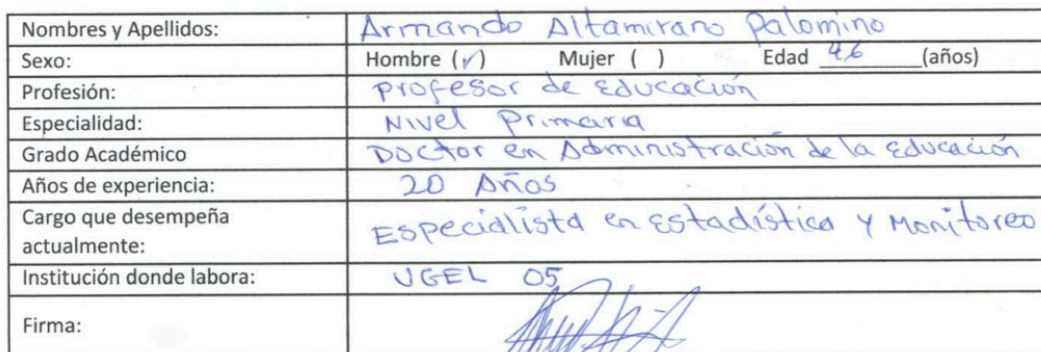 Nombres y Apellidos: Armando Altamirano Palomino
Sexo: Hombre (✓) Mujer ( ) Edad 46 (años)
Profesión: Profesor de Educación
Especialidad: Nivel Primaria
Grado Académico Doctor en Administración de la Educación
Años de experiencia: 20 Años
Cargo que desempeña
actualmente: Especialista en Estadística y Monitoreo
Institución donde labora: UGEL 05
Firma: